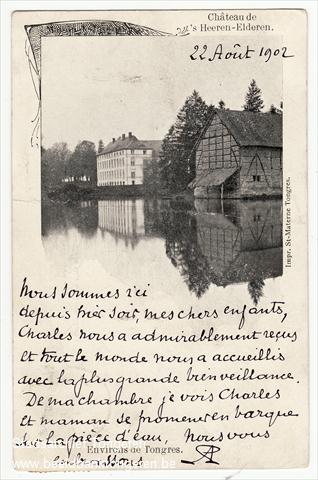 Château de
's Heeren-Elderen.
22 Août 1902
Impr. St-Materne Tongres.
Nous sommes ici
depuis hier soir, mes chers enfants,
Charles nous a admirablement reçus
et tout le monde nous a accueillis
avec la plus grande bienveillance.
De ma chambre je vois Charles
et maman se promener en barque
sur la pièce d'eau, nous vous
Environs de Tongres.
embrassons